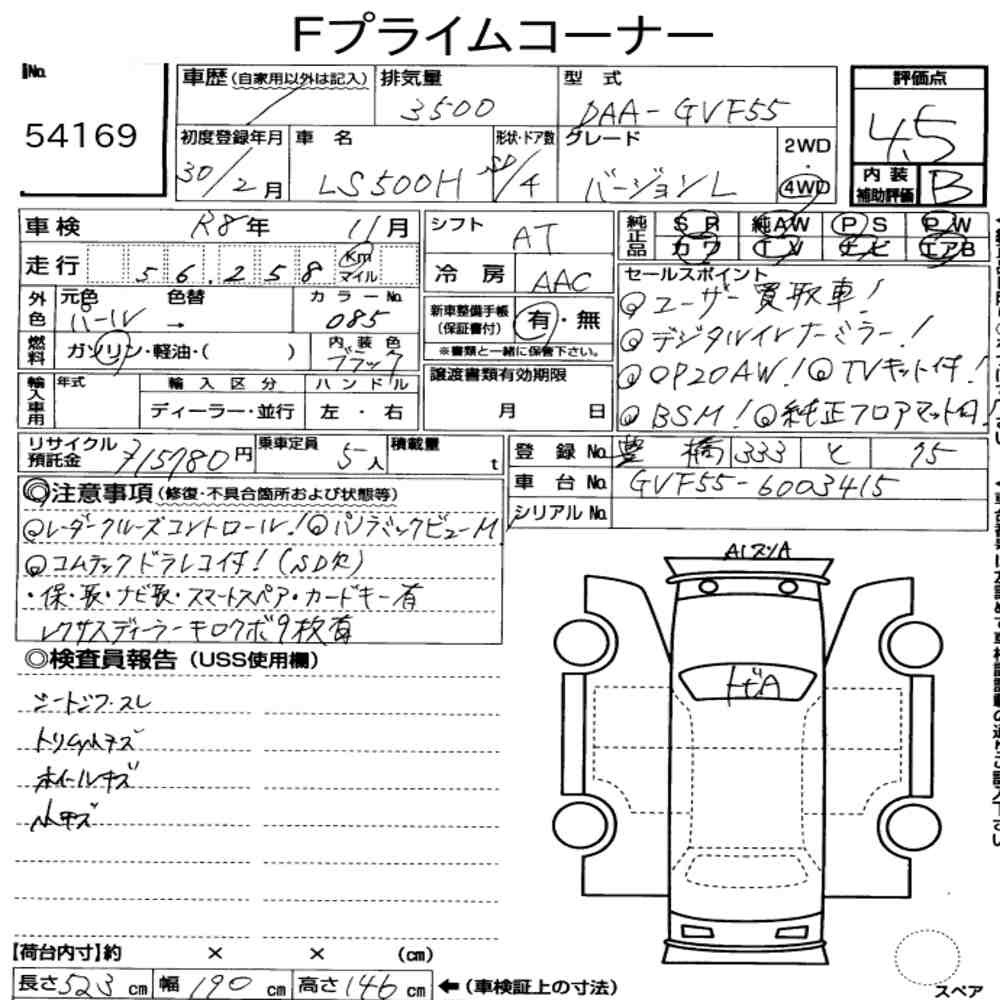 Fプライムコーナー
No.
54169
車歴(自家用以外は記入) 排気量 型式
3500 DAA-GVF55
初度登録年月 車名 形状・ドア数 グレード 2WD・4WD
30/2月 LS500H SD/4 バージョンL
評価点
4.5
内装補助評価 B
車検 R8年 11月
走行 56,258 Km マイル
外色 元色 色替 カラーNo.
パール → 085
燃料 ガソリン・軽油・( ) 内装色 ブラック
輸入車用 年式 輸入区分 ハンドル
ディーラー・並行 左・右
シフト AT
冷房 AAC
新車整備手帳(保証書付) 有・無
※書類と一緒に保管下さい。
譲渡書類有効期限
月 日
純正品 SR 純AW PS PW
カワ TV ナビ エアB
セールスポイント
◎ユーザー買取車!
◎デジタルインナーミラー!
◎OP20AW!◎TVキット付!
◎BSM!◎純正フロアマット付!
リサイクル預託金 715780円 乗車定員 5人 積載量 t
登録No. 豊橋 333 と 75
車台No. GVF55-6003415
シリアルNo.
◎注意事項(修復・不具合箇所および状態等)
◎レーダークルーズコントロール!◎パノラミックビューM
◎コムテックドラレコ付!(SD欠)
・保・取・ナビ取・スマートスペア・カードキー有
レクサスディーラーキロクボ9枚有
◎検査員報告(USS使用欄)
シートシワ・スレ
トリム小キズ
ホイールキズ
小キズ
A1スリA
トビA
【荷台内寸】約 × × (cm)
長さ523cm 幅190cm 高さ146cm ←(車検証上の寸法)
スペア